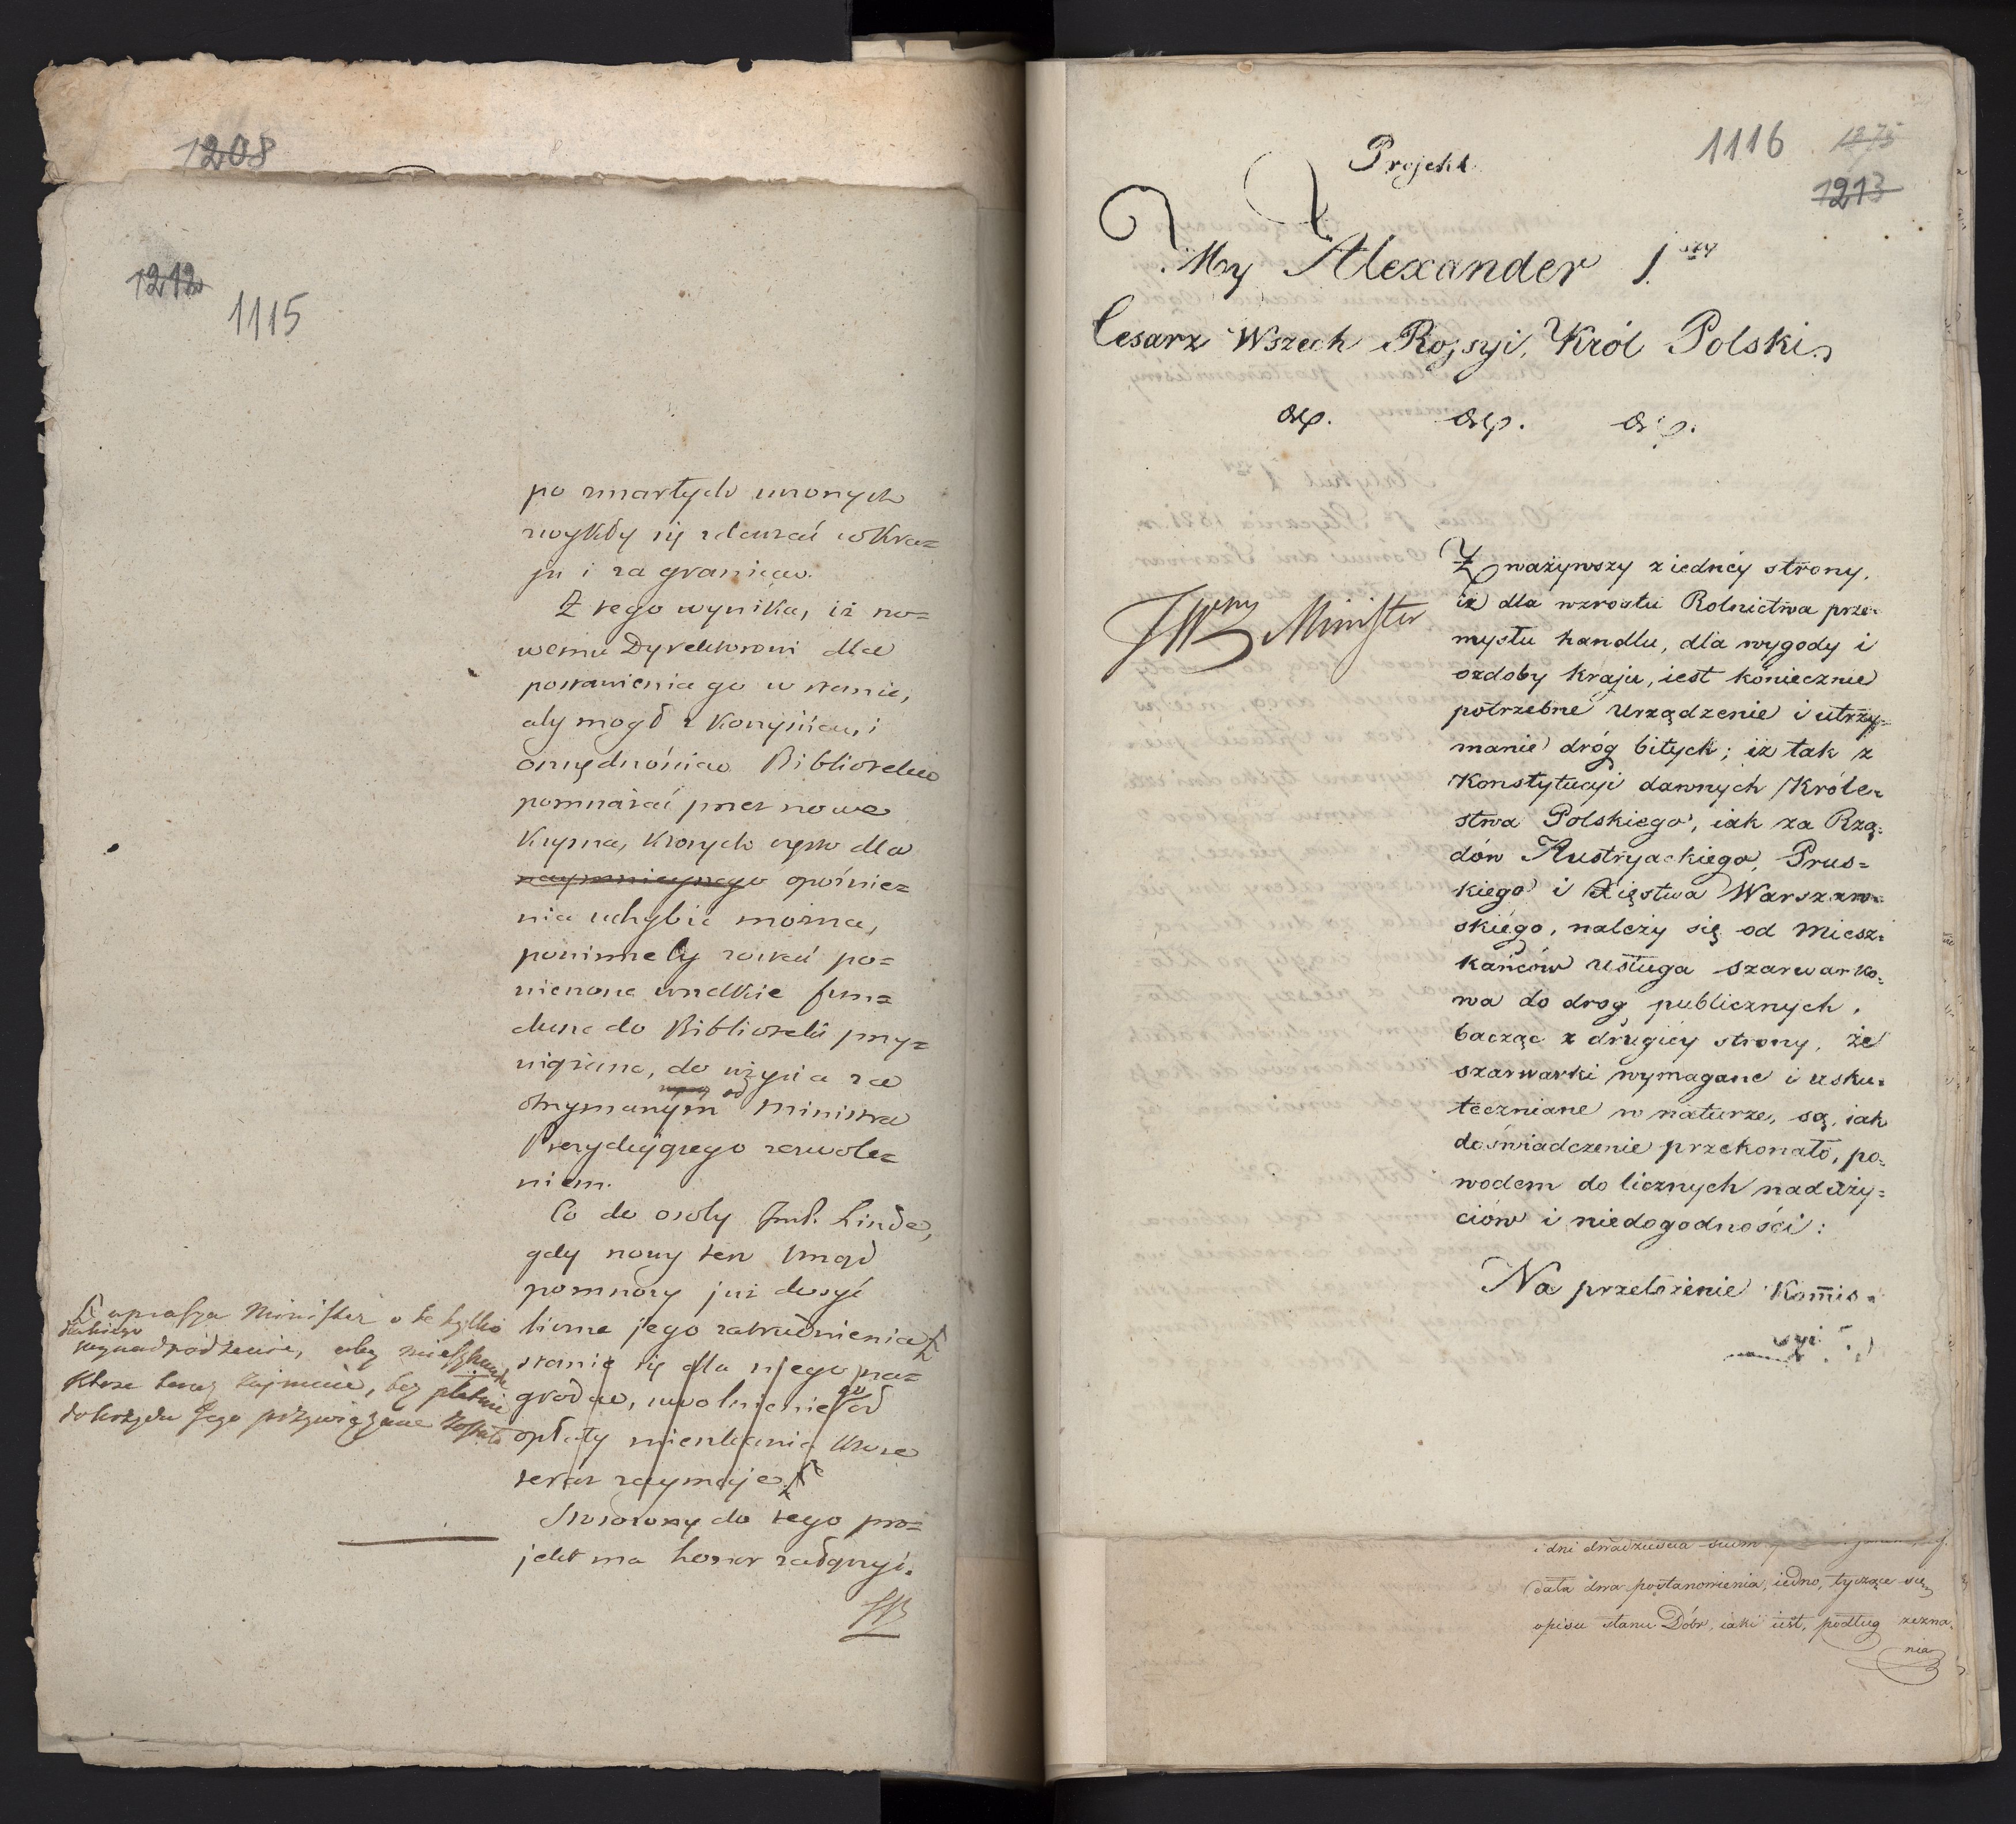 1208
1212
1115
po zmarłych uczonych
zwykły się zdarzać w Kra=
ju i za granicą.
Z tego wynika, iż no=
wemu Dyrektorowi dla
postawienia go w stanie,
aby mógł z korzyścią i
oszczędnością Bibliotekę
pomnażać przez nowe
Kupna, których często dla
opóźnie=
nia uchybić można,
powinne by zostać po=
wierzone wszelkie fun=
dusze do Biblioteki przy=
wiązane, do użycia za
otrzymanym od Ministra
Prezydującego zezwole=
niem.
Co do osoby Linde,
gdy nowy ten Urząd
pomnoży już dosyć
liczne jego zatrudnienia
stanie się dla niego na=
grodą, uwolnienie go od
opłaty mieszkania które
teraz zajmuje.
uprasza Minister o to tylko
takiego
wynadgrodzenie, aby mieszkanie
które teraz zajmuie, bez płatnie
do Urzędu Jego przywiązane zostało
Stosowny do tego pro=
jekt ma honor załączyć.
Projekt
1116
1275
1213
My Alexander 1.szy
Cesarz Wszech Rossyi, Król Polski,
&c. &c. &c.
JWny Minister
Zważywszy z iednéy strony,
iż dla wzrostu Rolnictwa prze=
mysłu handlu, dla wygody i
ozdoby kraju, iest koniecznie
potrzebne urządzenie i utrzy=
manie dróg bitych; iż tak z
Konstytucyi dawnych Króle=
stwa Polskiego, iak za Rzą=
dów Austryackiego, Prus=
kiego i Xięstwa Warszaw=
skiégo, należy się od miesz=
kańców usługa szarwarko=
wa do drog publicznych,
bacząc z drugiéy strony, że
szarwarki wymagane i usku=
teczniane w naturze, są, iak
doświadczenie przekonało, po=
wodem do licznych naduży=
ciów i niedogodności:
Na przełożenie Kommis=
syi
i dni dwadzieścia siedm
data dwa postanowienia, iedno, tyczące się
opisu stanu Dóbr, iaki iest, podług zezna=
nia